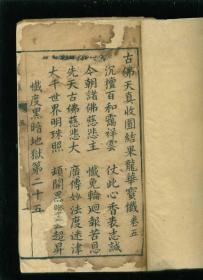 古佛天真收圓結果龍華寶懺卷五
沉檀百和靄祥雲　仗此心香表志誠
今朝諸佛慈悲主　懺免輪迴報苦恩
先天古佛慈悲大　廣傳妙法度迷津
大千世界明珠照　頓開黑暗　超昇
懺度黑暗地獄第二十五